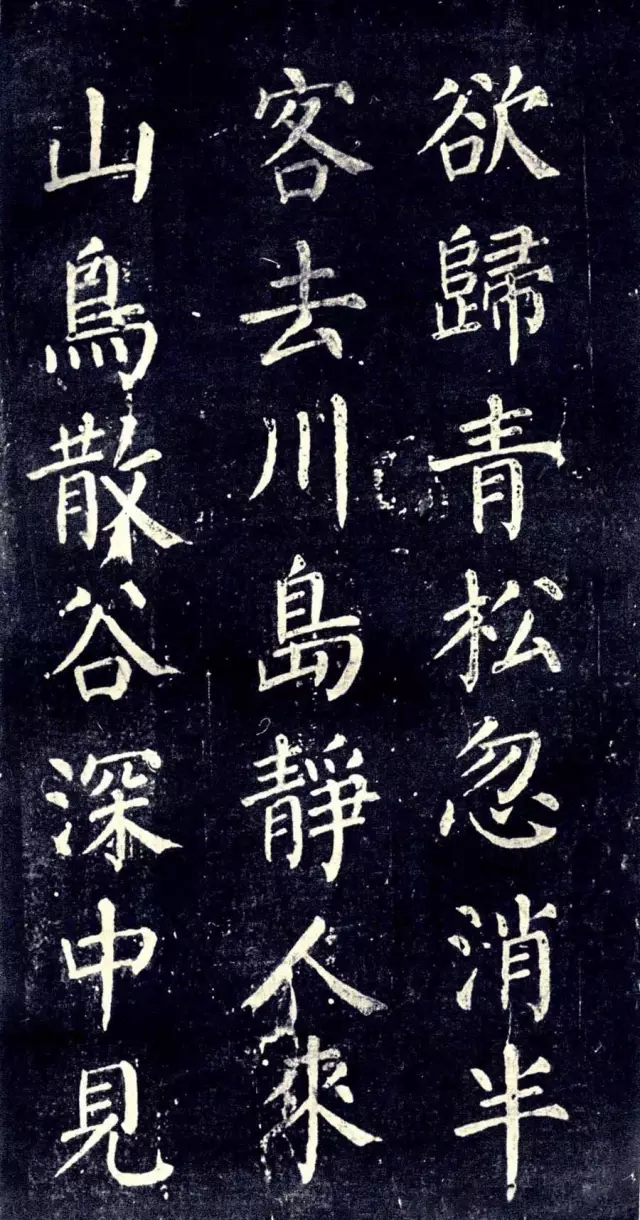 欲歸青松忽消半
客去川島靜人來
山鳥散谷深中見